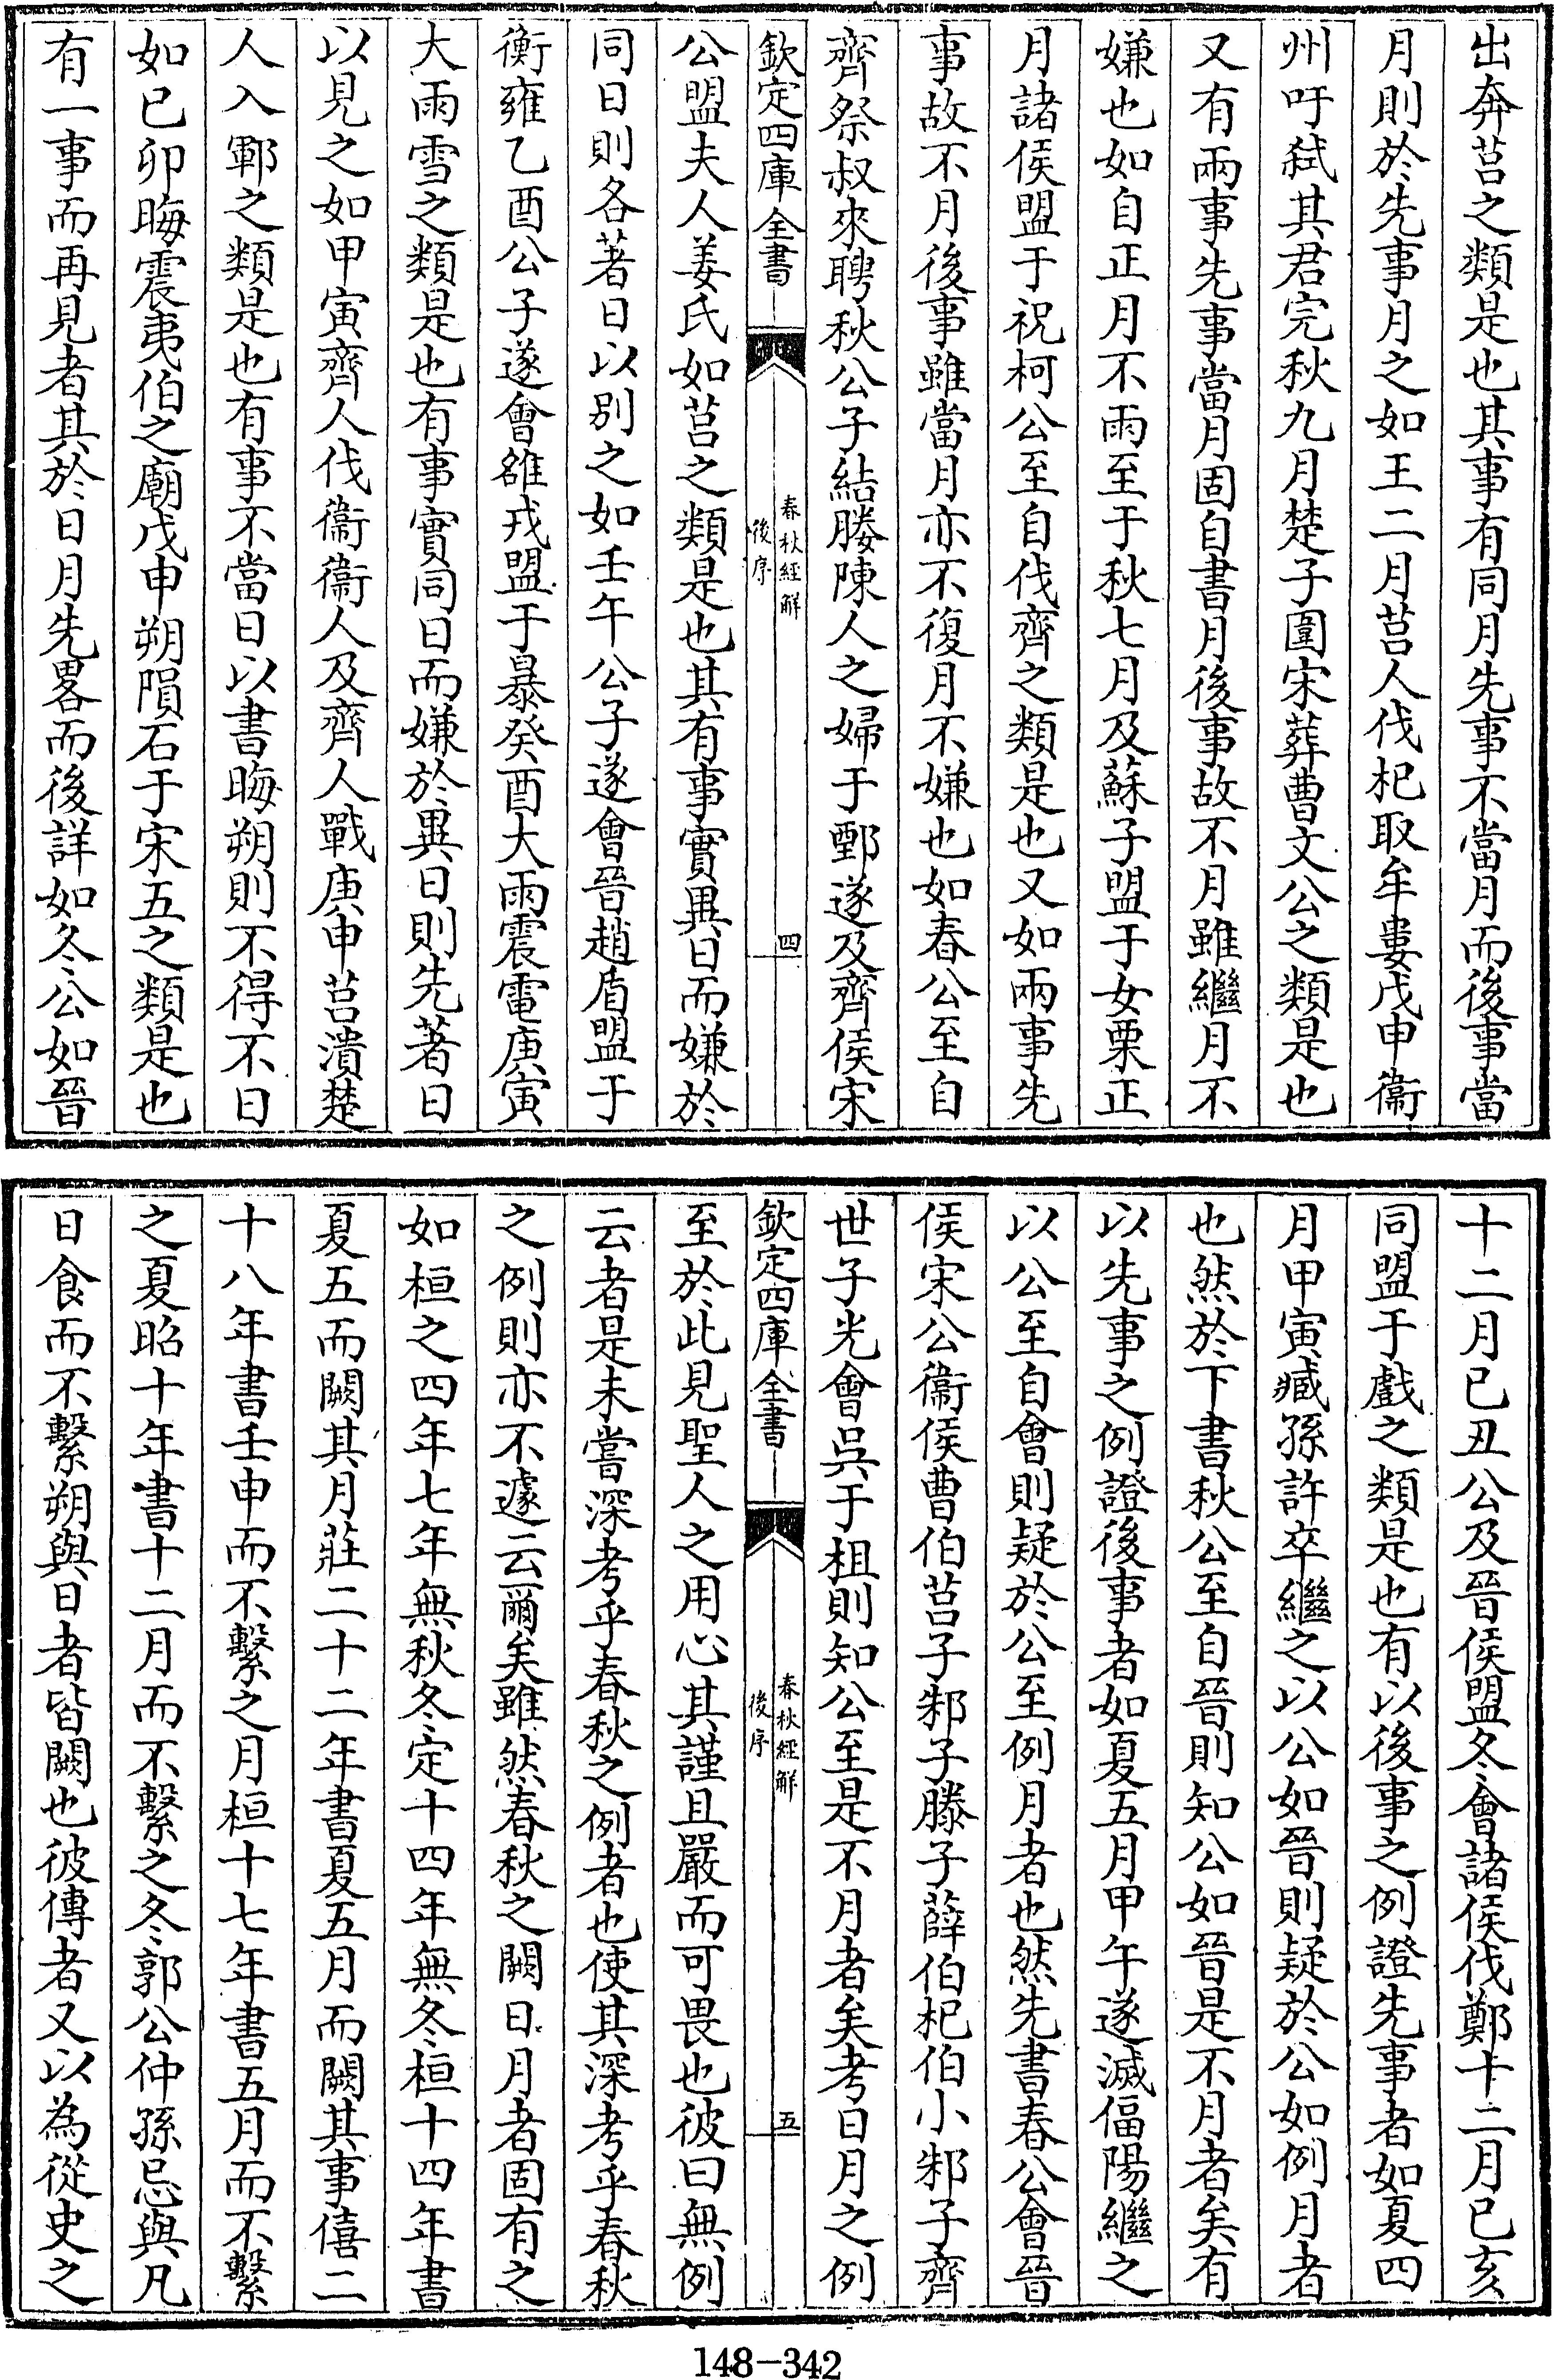 出奔莒之類是也其事有同月先事不當月而後事當
月則於先事月之如王二月莒人伐杞取牟婁戊申衞
州吁弑其君完秋九月楚子圍宋葬曹文公之類是也
又有兩事先事當月固自書月後事故不月雖繼月不
嫌也如自正月不雨至于秋七月及蘇子盟于女栗正
月諸侯盟于祝柯公至自伐齊之類是也又如兩事先
事故不月後事雖當月亦不復月不嫌也如春公至自
齊祭叔來聘秋公子結媵陳人之婦于鄄遂及齊侯宋
欽定四庫全書
春秋經解
後序
四
公盟夫人姜氏如莒之類是也其有事實異日而嫌於
同日則各著日以别之如壬午公子遂會晉趙盾盟于
衡雍乙酉公子遂會雒戎盟于暴癸酉大雨震電庚寅
大雨雪之類是也有事實同日而嫌於異日則先著日
以見之如甲寅齊人伐衞衞人及齊人戰庚申莒潰楚
人入鄆之類是也有事不當日以書晦朔則不得不日
如已卯晦震夷伯之廟戊申朔隕石于宋五之類是也
有一事而再見者其於日月先畧而後詳如冬公如晉
十二月已丑公及晉侯盟冬會諸侯伐鄭十二月已亥
同盟于戲之類是也有以後事之例證先事者如夏四
月甲寅臧孫許卒繼之以公如晉則疑於公如例月者
也然於下書秋公至自晉則知公如晉是不月者矣有
以先事之例證後事者如夏五月甲午遂滅偪陽繼之
以公至自會則疑於公至例月者也然先書春公會晉
侯宋公衞侯曹伯莒子邾子滕子薛伯杞伯小邾子齊
世子光會吳于柤則知公至是不月者矣考日月之例
欽定四庫全書
春秋經解
後序
五
至於此見聖人之用心其謹且嚴而可畏也彼曰無例
云者是未嘗深考乎春秋之例者也使其深考乎春秋
之例則亦不遽云爾矣雖然春秋之闕日月者固有之
如桓之四年七年無秋冬定十四年無冬桓十四年書
夏五而闕其月莊二十二年書夏五月而闕其事僖二
十八年書壬申而不繫之月桓十七年書五月而不繫
之夏昭十年書十二月而不繫之冬郭公仲孫忌與凡
日食而不繫朔與日者皆闕也彼傳者又以為從史之
148-342